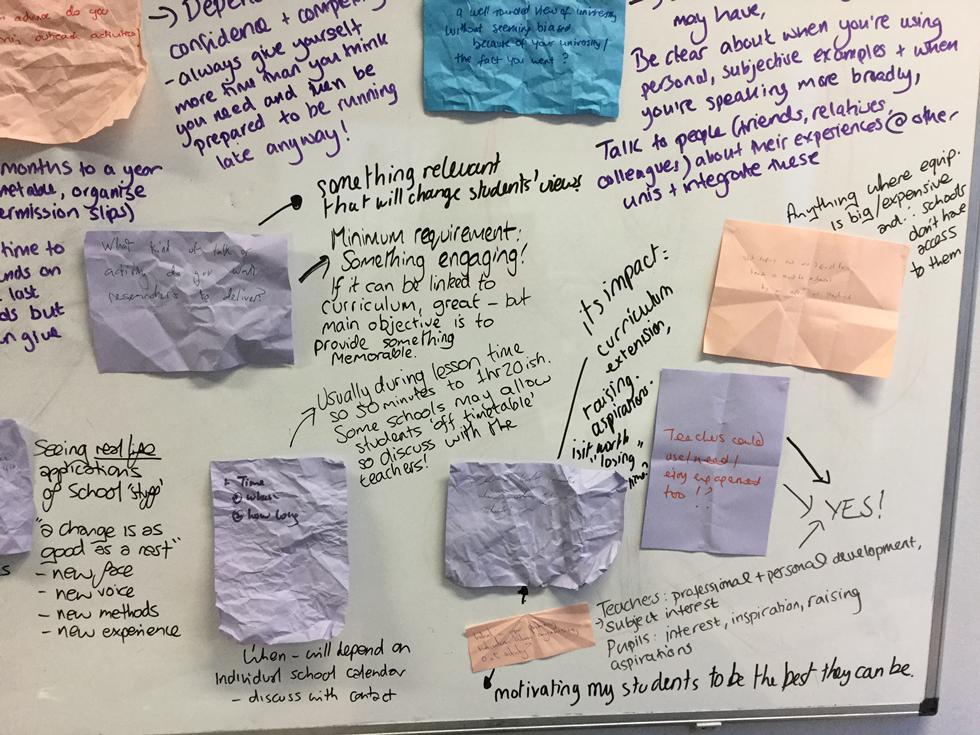 advice do you
outreach activities
→ Depend
confidence +
- always give yourself
more time than you think
you need and then be
prepared to be running
late anyway!
a well rounded view of university
without seeming biased
because of your university/
the fact you went?
may have,
Be clear about when you're using
personal, subjective examples + when
you're speaking more broadly,
Talk to people (friends, relatives,
colleagues) about their experiences @ other
unis + integrate these
months to a year
metable, organise
ermission slips)
time to
nds on
last
ds but
n give
something relevant
that will change students' views
What kind of talk or
activity do you want
researchers to deliver?
Minimum requirement:
Something engaging!
If it can be linked to
curriculum, great – but
main objective is to
provide something
Memorable.
its impact:
curriculum
extension,
raising
aspirations.
is it worth
"losing
time?"
Anything where equip.
is big/expensive
and.. schools
don't have
access
to them
Usually during lesson time
so 50 minutes to 1hr20ish.
Some schools may allow
students 'off timetable'
so discuss with the
teachers!
Time
when
how long
When – will depend on
Individual school calendar
– discuss with contact
Seeing real life
applications
of School 'stuff'
"a change is as
good as a rest"
- new face
- new voice
- new methods
- new experience
Teachers could
use/need/
enjoy
too!?
YES!
Teachers: professional + personal development,
→ subject interest
Pupils: interest, inspiration, raising
aspirations
motivating my students to be the best they can be.